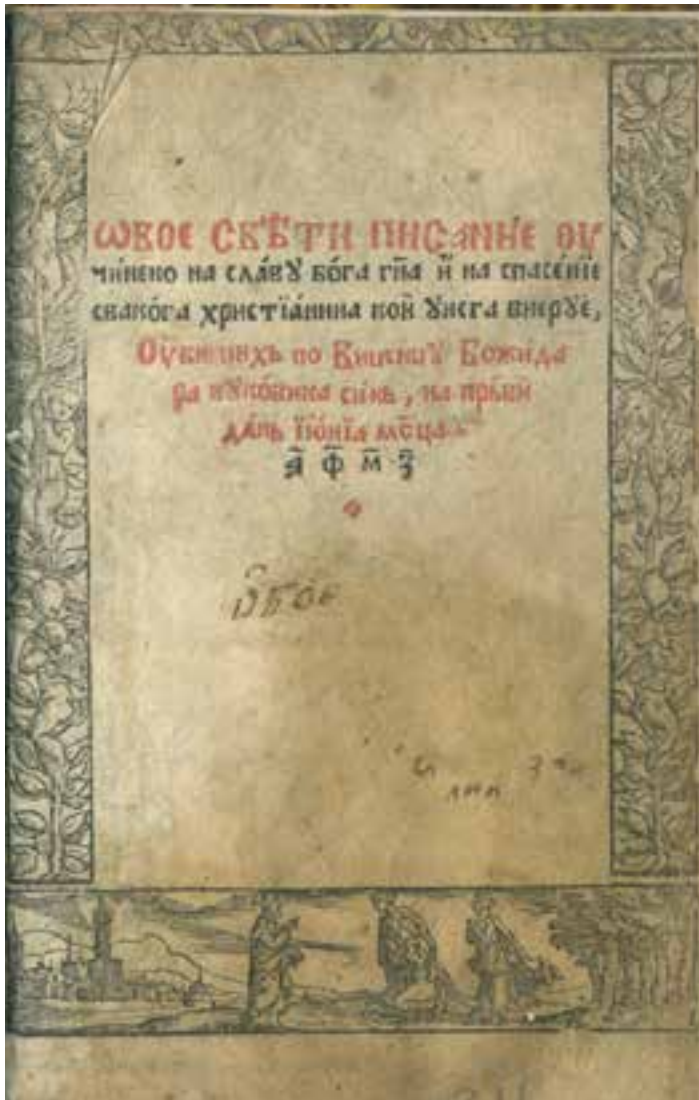 ѡвое свѣти писание оу
чинено на сла́ву бо́га гн҃а и҆ на спасе́нїе
свако́га христїа́нина кои̑ у҆нега виеруе,
Оу҆ винцихь по Виценцу Божида
ра вуко́вика синѣ, на пръви
да́нь їю́нїа мс҃ца
҂а҃ ф҃ м҃ з҃
ѡ҆вое